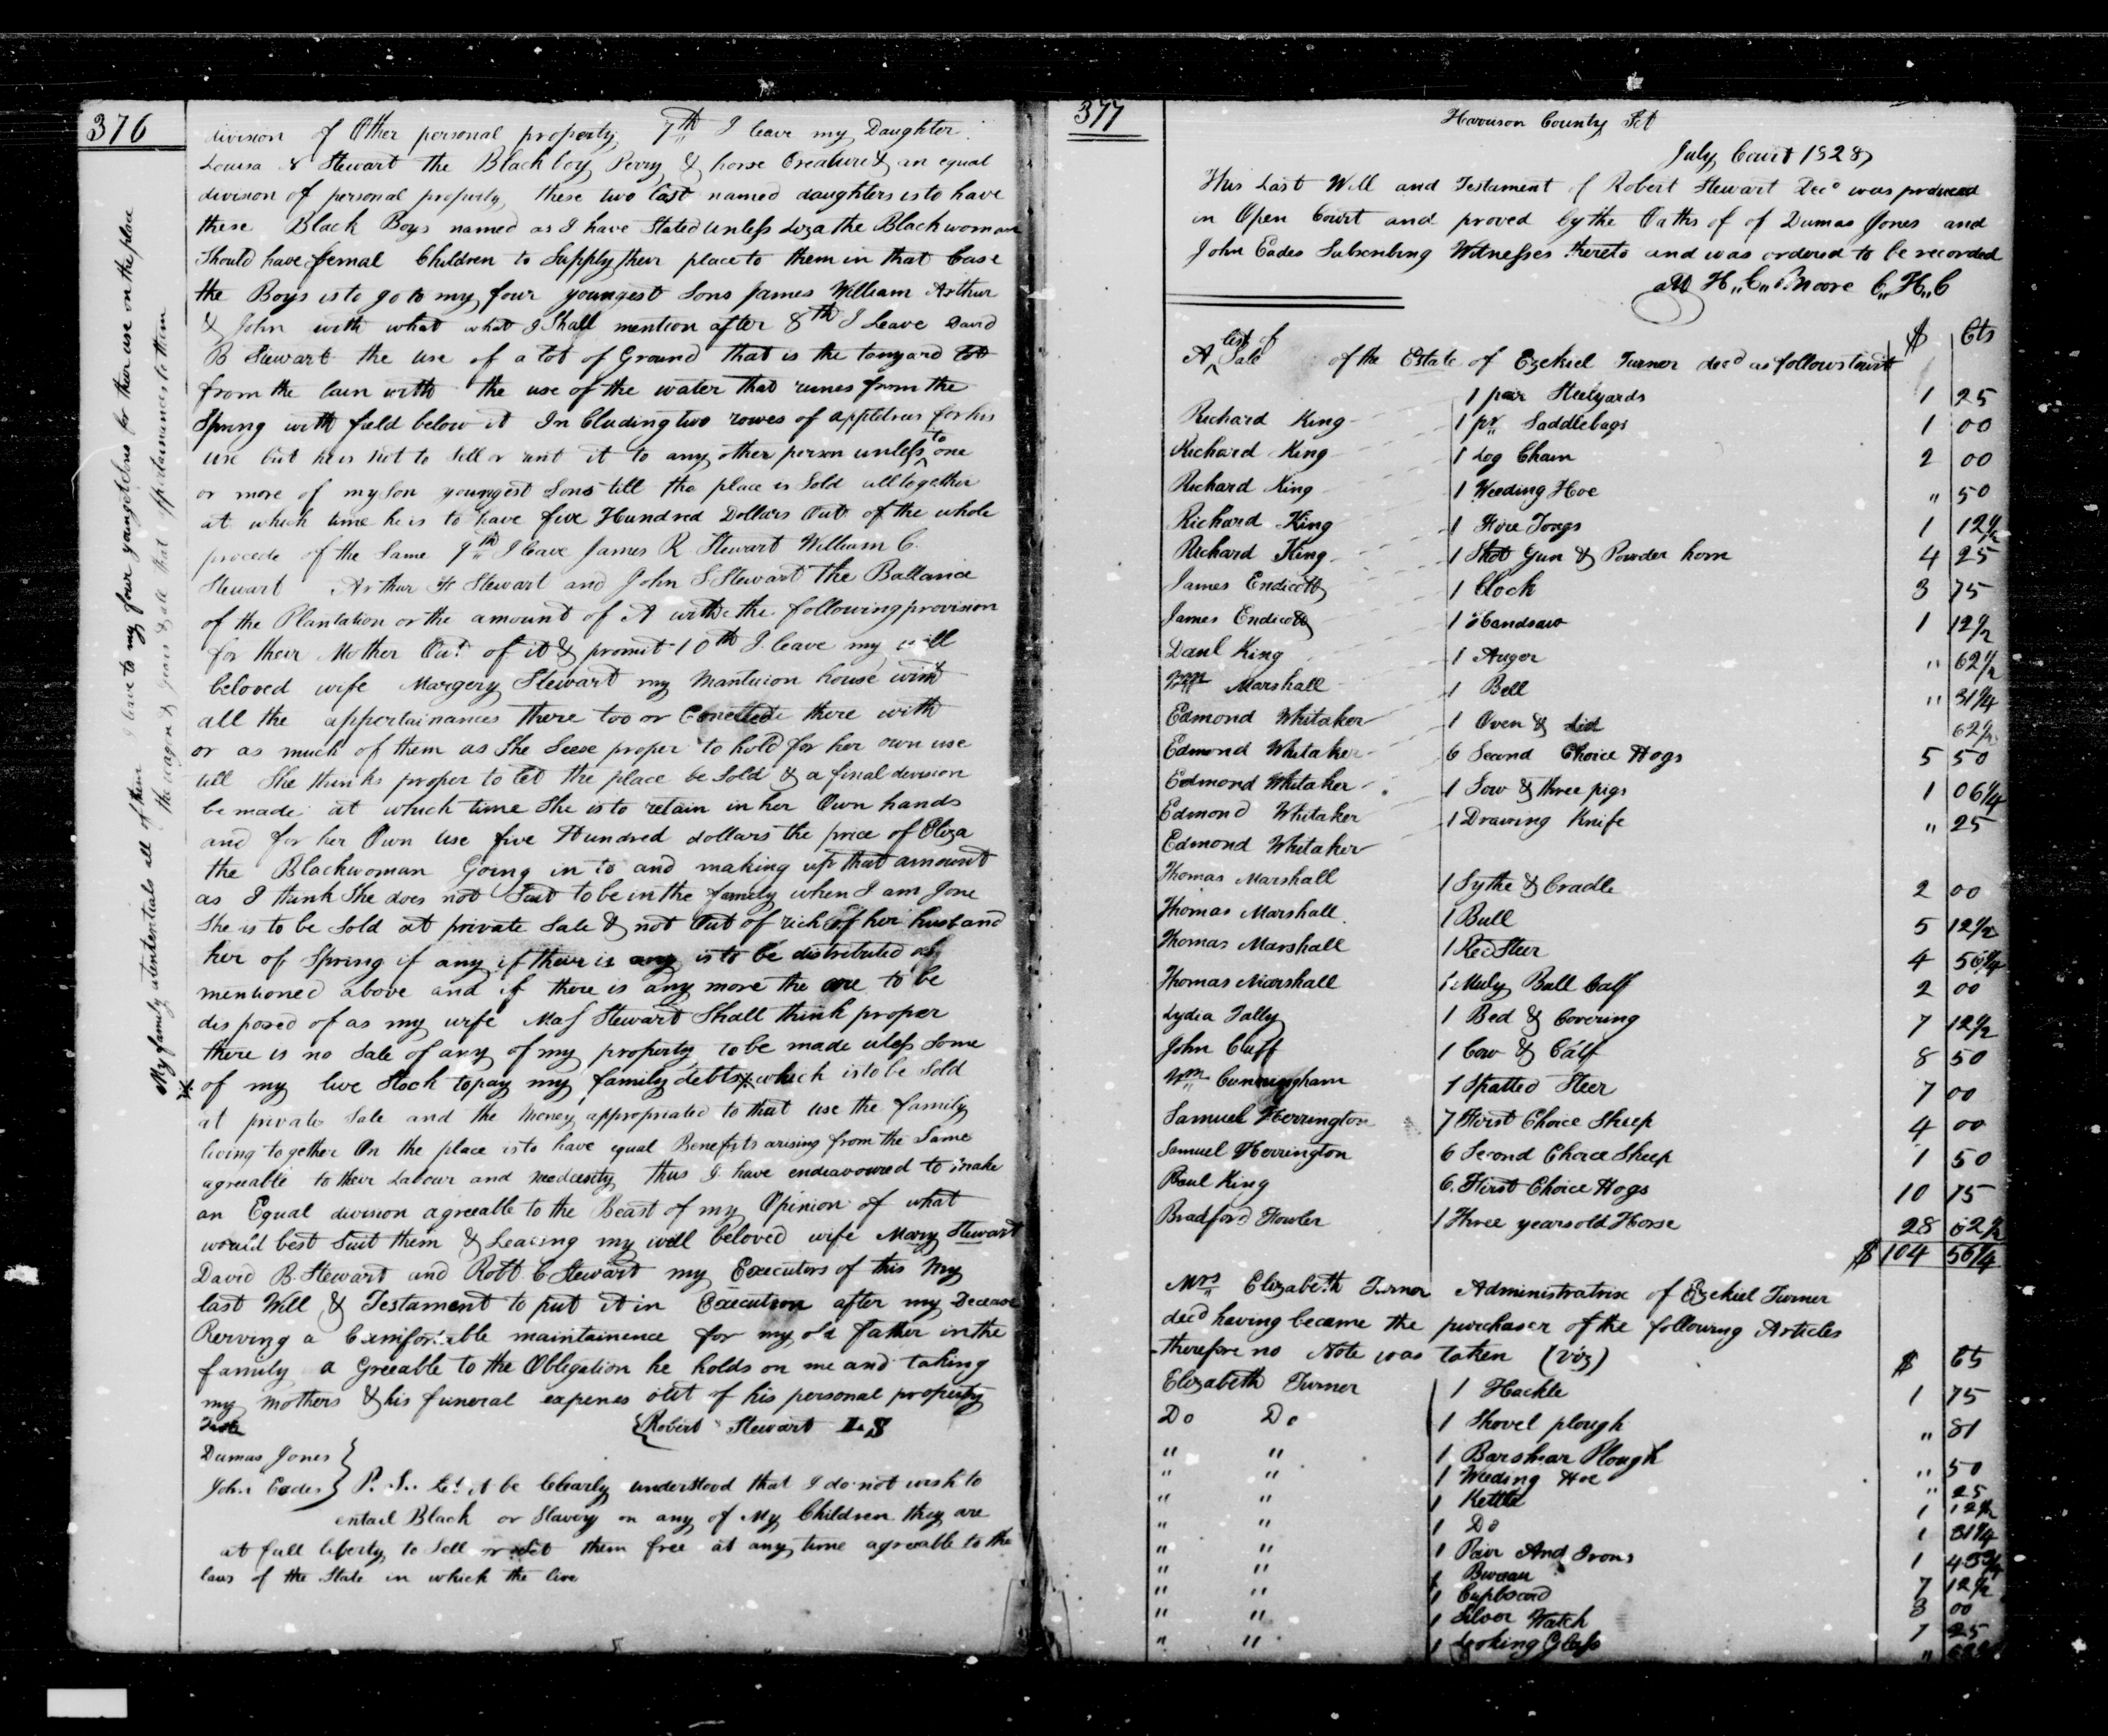 376
division of Other personal property 7th I leave my Daughter
Louisa N Stewart the Black boy Perry & horse Creature & an equal
divison of personal property these two last named daughters is to have
these Black Boys named as I have Stated unless Liza the Black woman
Should have femal Children to Supply their place to them in that Case
the Boys is to go to my four youngest Sons James William Arthur
& John with what what I Shall mention after 8th I Leave David
B Stewart the use of a lot of Ground that is the tanyard lot
from the with the use of the water that runes from the
Spring with field below it In Cluding two rowes of appletrees for his
use but he is not to Sell or rent it to any other person unless to one
or more of my Son youngest Sons till the place is Sold alltogether
at which time he is to have five Hundred Dollars Out of the whole
procede of the Same 9th I leave James R Stewart William C.
Stewart Arthur H Stewart and John S Stewart the Ballance
of the Plantation or the amount of A with the following provision
for their Mother Out of it & promit 10th I leave my well
beloved wife Margery Stewart my Mantuion house with
all the appertainances there too or Conected there with
or as much of them as She Seese proper to hold for her own use
till She thinks proper to let the place be Sold & a final division
be made at which time She is to retain in her Own hands
and for her Own use five Hundred dollars the price of Eliza
the Blackwoman Going in to and making up that amount
as I think She does not Suit to be in the family when I am Gone
She is to be Sold at private Sale & not Out of rich of her husband
her of Spring if any if their is any is to be distributed as
mentioned above and if there is any more the are to be
disposed of as my wife Stewart Shall think proper
there is no Sale of any of my property to be made uless Some
of my live Stock to pay my family debts which is to be Sold
at private Sale and the money appropriated to that use the family
living together On the place is to have equal Benefits arising from the Same
agreeable to their Labour and thus I have endeavoured to make
an Equal division agreeable to the Beast of my Opinion of what
would best Suit them & Leaving my well beloved wife Mary Stewart
David B. Stewart and Robt C Stewart my Executors of this My
last Will & Testament to put it in Execution after my Decease
Rerving a Comfortable maintainence for my old father in the
family a Greeable to the Obligation he holds on me and taking
my mothers & his funeral expenes out of his personal property
Teste
Robert Stewart LS
Dumas Jones
John Eades
P. S. Let it be Clearly understood that I do not wish to
entail Black or Slavery on any of My Children they are
at full liberty to Sell or Set them free at any time agreeable to the
laws of the State in which the live
My family utententials all of them I leave to my four youngest Sons for their use on the place
the wagon & gears & all that appertainances to them
377
Harrison County Sct
July Court 1828
This Last Will and Testament of Robert Stewart Decd was produced
in Open Court and proved by the Oaths of of Dumas Jones and
John Eades Subscribing Witnesses thereto and was ordered to be recorded
Att H,,C,, Moore C,,H,,C
$ Cts
A list of Sale of the Estate of Ezekiel Turner decd as follows towit
1 pair Steelyards 1 25
Richard King 1 pr Saddlebags 1 00
Richard King 1 Log Chain 2 00
Richard King 1 Weeding Hoe " 50
Richard King 1 Fire Tongs 1 12½
Richard King 1 Shot Gun & Powder horn 4 25
James Endicott 1 Clock 3 75
James Endicott 1 Handsaw 1 12½
Danl King 1 Auger " 62½
Wm Marshall 1 Bell " 31¼
Edmond Whitaker 1 Oven & Lid 62½
Edmond Whitaker 6 Second Choice Hogs 5 50
Edmond Whitaker 1 Sow & three pigs 1 06¼
Edmond Whitaker 1 Drawing Knife " 25
Edmond Whitaker
Thomas Marshall 1 Sythe & Cradle 2 00
Thomas Marshall 1 Bull 5 12½
Thomas Marshall 1 Red Steer 4 56¼
Thomas Marshall 1 Muly Bull Calf 2 00
Lydia Tally 1 Bed & Covering 7 12½
John Cuff 1 Cow & Calf 8 50
Wm Cunningham 1 Spatted Steer 7 00
Samuel Herrington 7 First Choice Sheep 4 00
Samuel Herrington 6 Second Choice Sheep 1 50
Paul King 6 First Choice Hogs 10 75
Bradford Fowler 1 Three years old Horse 28 62½
$ 104 56¼
Mrs Elizabeth Turner Administratrix of Ezekiel Turner
decd having became the purchaser of the following Articles
therefore no Note was taken (viz) $ Cts
Elizabeth Turner 1 Hackle 1 75
Do Do 1 Shovel plough " 81
" " 1 Barshear Plough " 50
" " 1 Weeding Hoe " 25
" " 1 Kettle 1 12½
" " 1 Do 1 31¼
" " 1 Pair And Irons 1 43¾
" " 1 Bureau 7 12½
" " 1 Cupboard 3 00
" " 1 Silver Watch 7 25
" " 1 Looking Glass "